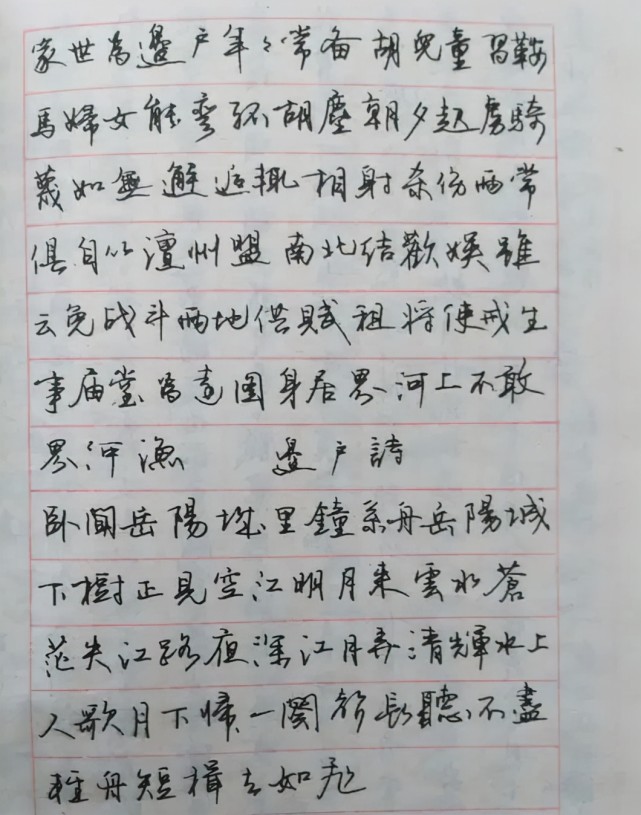 家世為邊户年々常备胡兒童習鞍
馬婦女能彎弧胡塵朝夕起虜騎
蔑如無邂逅輒相射杀伤两常
俱自从澶州盟南北结歡娱雖
云免战斗两地供賦租将使戒生
事庙堂為遠图身居界河上不敢
界河漁 邊户詩
卧聞岳陽城里鐘系舟岳陽城
下樹正見空江明月来雲水蒼
茫失江路夜深江月弄清輝水上
人歌月下帰一闋聲長聽不盡
軽舟短楫去如飛